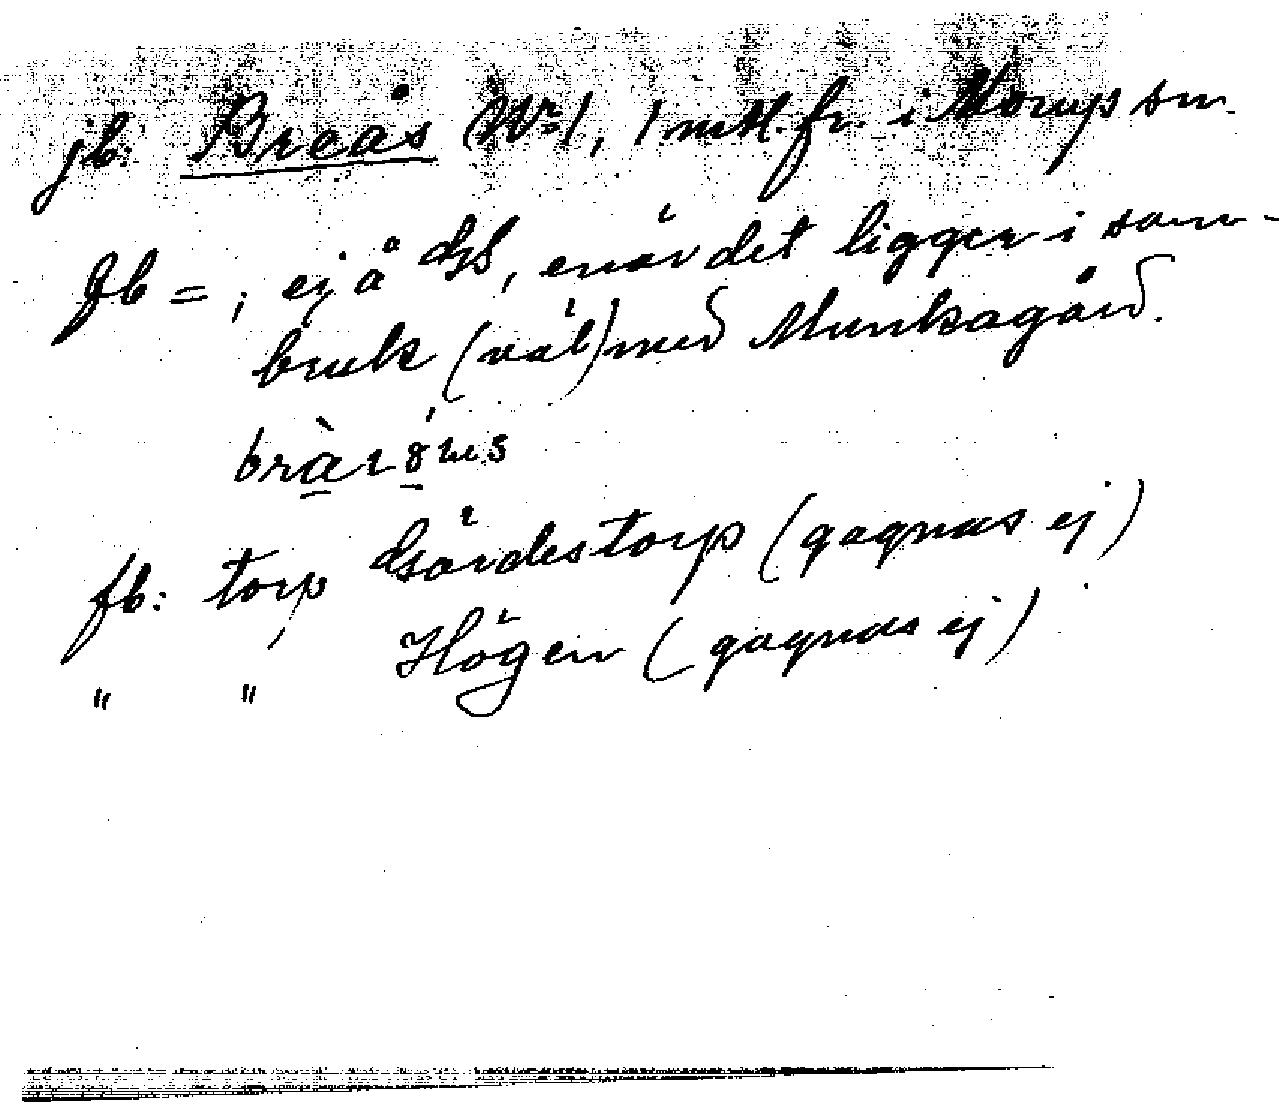 jb: Breås No 1, 1 mtl. fr. i Morups sn.
fb = , ej å GS, enär det ligger i sam-
bruk (väl) med Munkagård.
fb: torp Gärdestorp (gagnas ej)
" " Högen (gagnas ej)